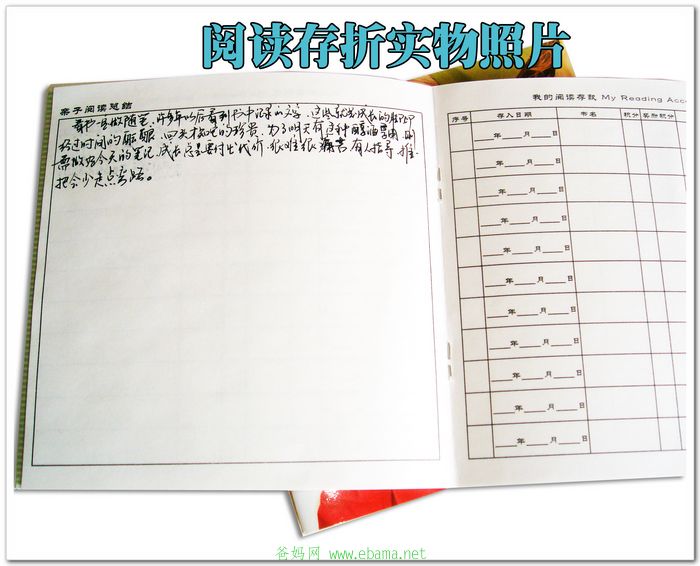 阅读存折实物照片
亲子阅读总结
看书一定做随笔，许多年以后看到书中记录的文字，这些就是成长的脚印
经过时间的 ，回头 的珍贵。为了明天有这种
要做好今天的笔记，成长总是要付出代价，很难很痛苦，有人指导，推
把会少走点弯路。
我的阅读存款 My Reading Acc
序号 存入日期 书名 积分 奖励积分
年 月 日
年 月 日
年 月 日
年 月 日
年 月 日
年 月 日
年 月 日
年 月 日
年 月 日
年 月 日
年 月 日
年 月 日
爸妈网 www.ebama.net